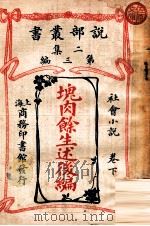 說部叢書
二集
第三編
社會小說 卷下
塊肉餘生述後編
上海
商務印書館發行